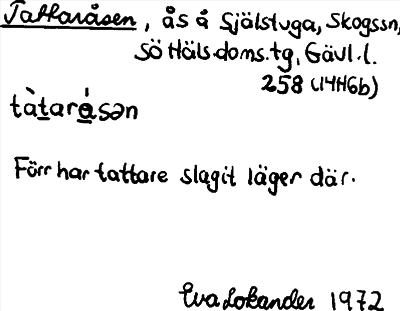 Tattaråsen, ås å Själstuga, Skogssn,
SÖ Häls.doms.tg, Gävl.l.
258 (14H6b)
tàtaråsən
Förr har tattare slagit läger där.
Eva Lokander 1972